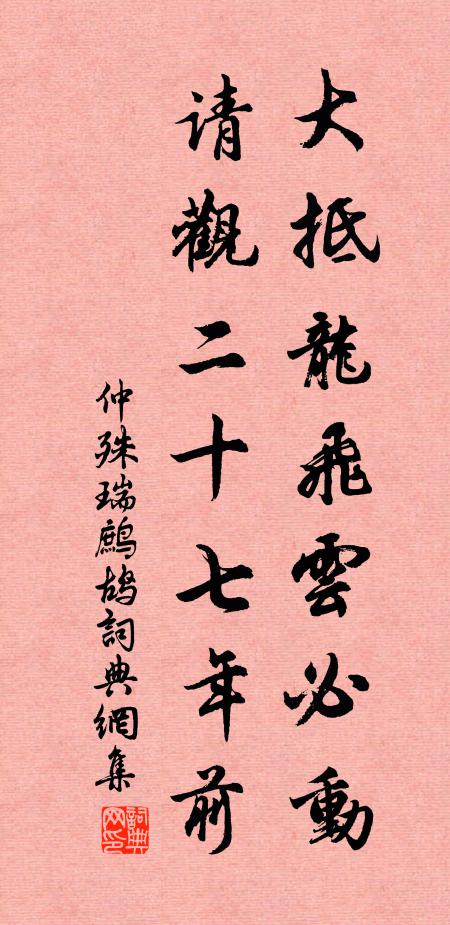 大抵龍飛雲必動
请觀二十七年前
仲殊瑞鷓鴣詞典網集
詞典网印